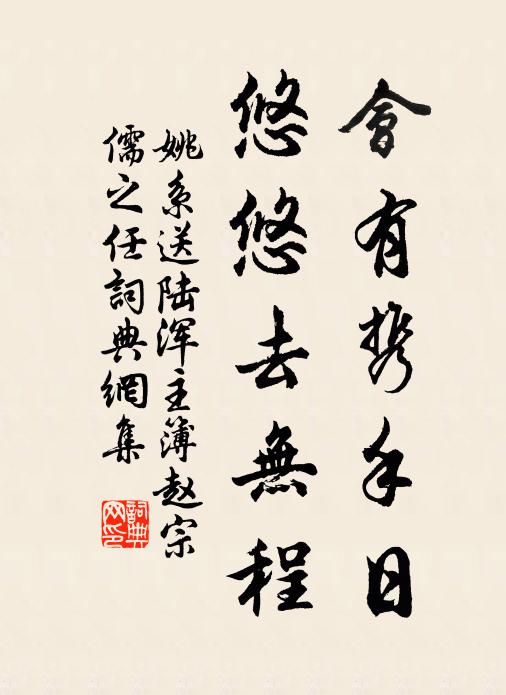 會有携手日
悠悠去無程
姚系送陆浑主簿赵宗
儒之任詞典網集
詞典
网印